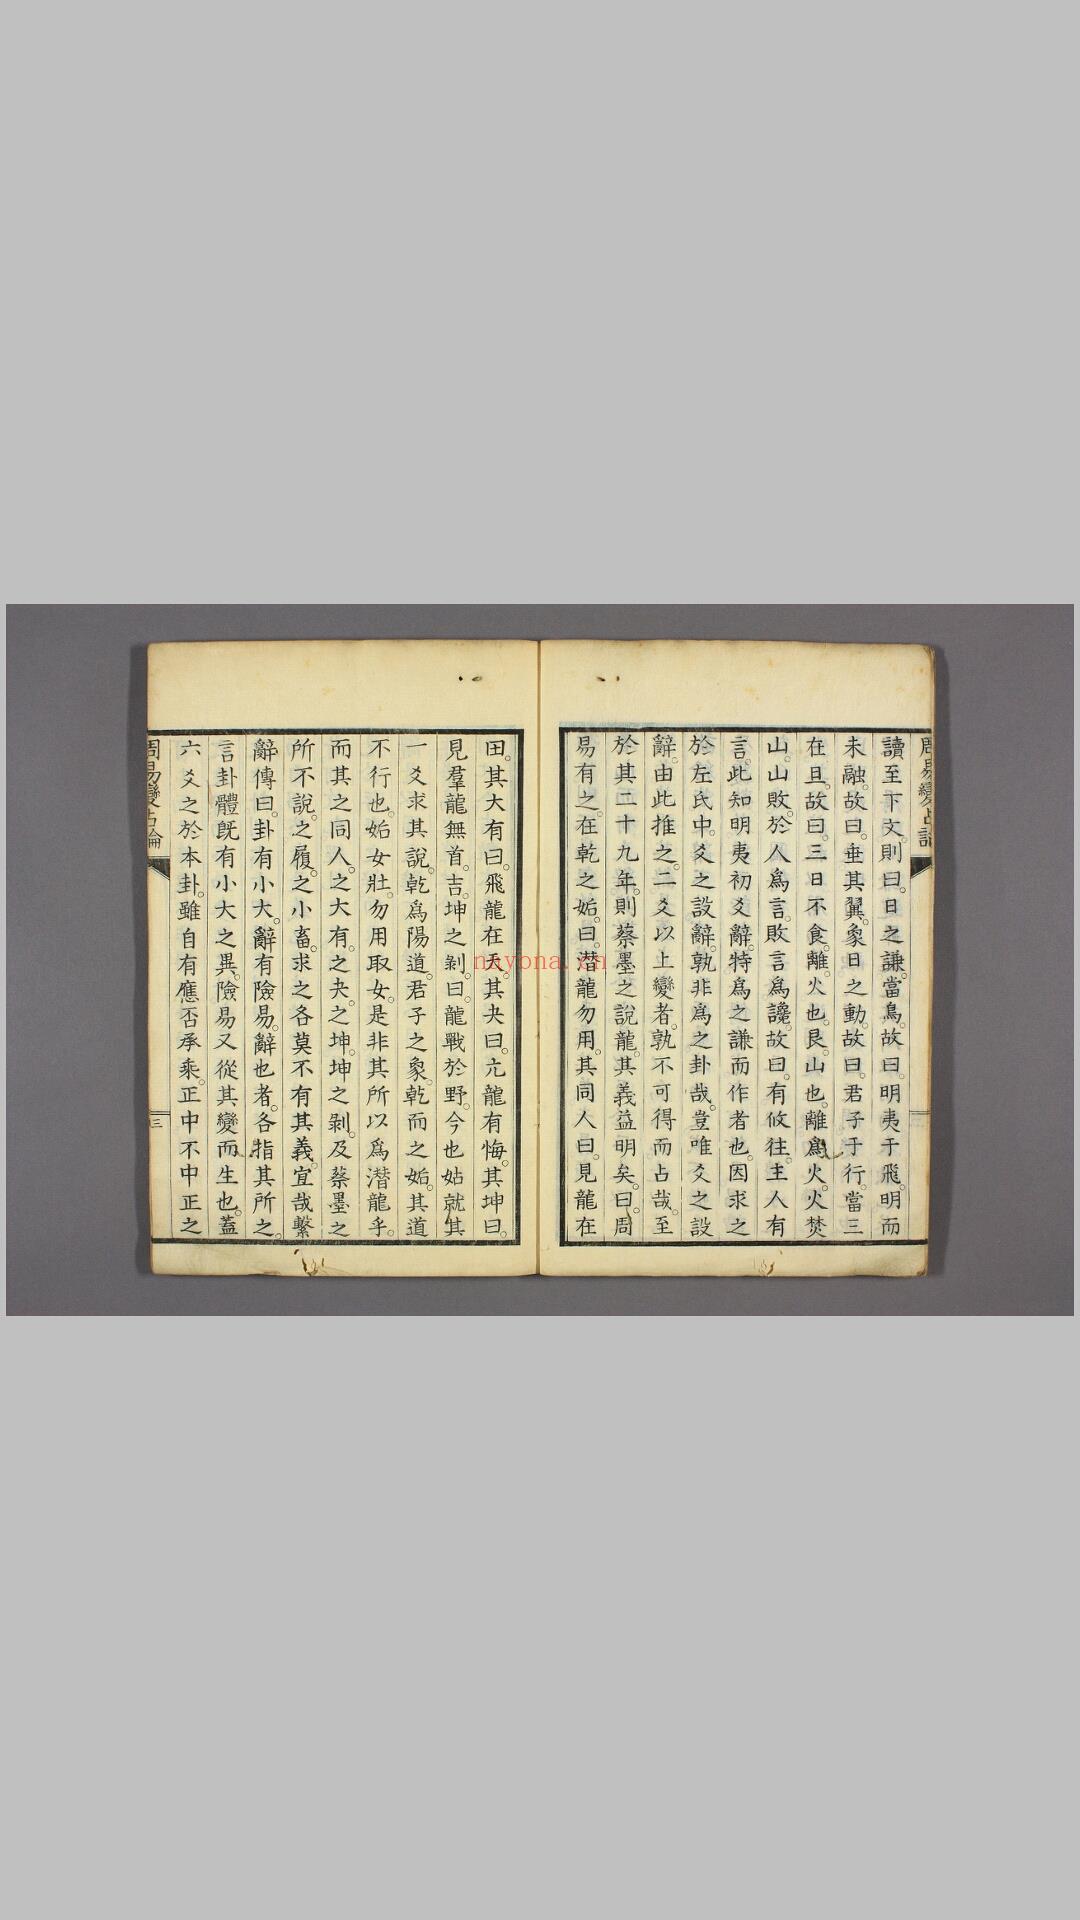 周易變占論
讀至下文。則曰。日之謙。當鳥。故曰。明夷于飛。明而
未融。故曰。垂其翼。象日之動。故曰。君子于行。當三
在旦。故曰。三日不食。離火也。艮。山也。離爲火。火焚
山。山敗。於人爲言。敗言爲讒。故曰。有攸往。主人有
言。此知明夷初爻辭。特爲之謙而作者也。因求之
於左氏中。爻之設辭。孰非爲之卦哉。豈唯爻之設
辭。由此推之。二爻以上變者。孰不可得而占哉。至
於其二十九年。則蔡墨之說龍。其義益明矣。曰。周
易有之。在乾之姤。曰。潛龍勿用。其同人曰。見龍在
田。其大有曰。飛龍在天。其夬曰。亢龍有悔。其坤曰。
見羣龍無首。吉。坤之剝。曰。龍戰於野。今也姑就其
一爻求其說。乾爲陽道。君子之象。乾而之姤。其道
不行也。姤女壯。勿用取女。是非其所以爲潛龍乎。
而其之同人。之大有。之夬。之坤。坤之剝。及蔡墨之
所不說。之履。之小畜。求之各莫不有其義。宜哉繫
辭傳曰。卦有小大。辭有險易。辭也者。各指其所之。
言卦體旣有小大之異。險易又從其變而生也。蓋
六爻之於本卦。雖自有應否承乘。正中不中正之
周易變占論
三
nayona.cn